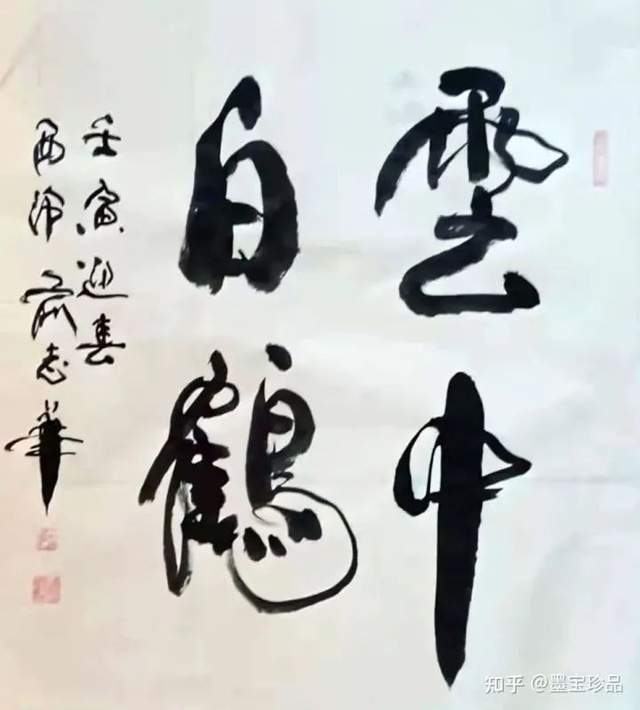 雲中
白鶴
壬寅迎春
西泠俞志華
知乎 @墨宝珍品